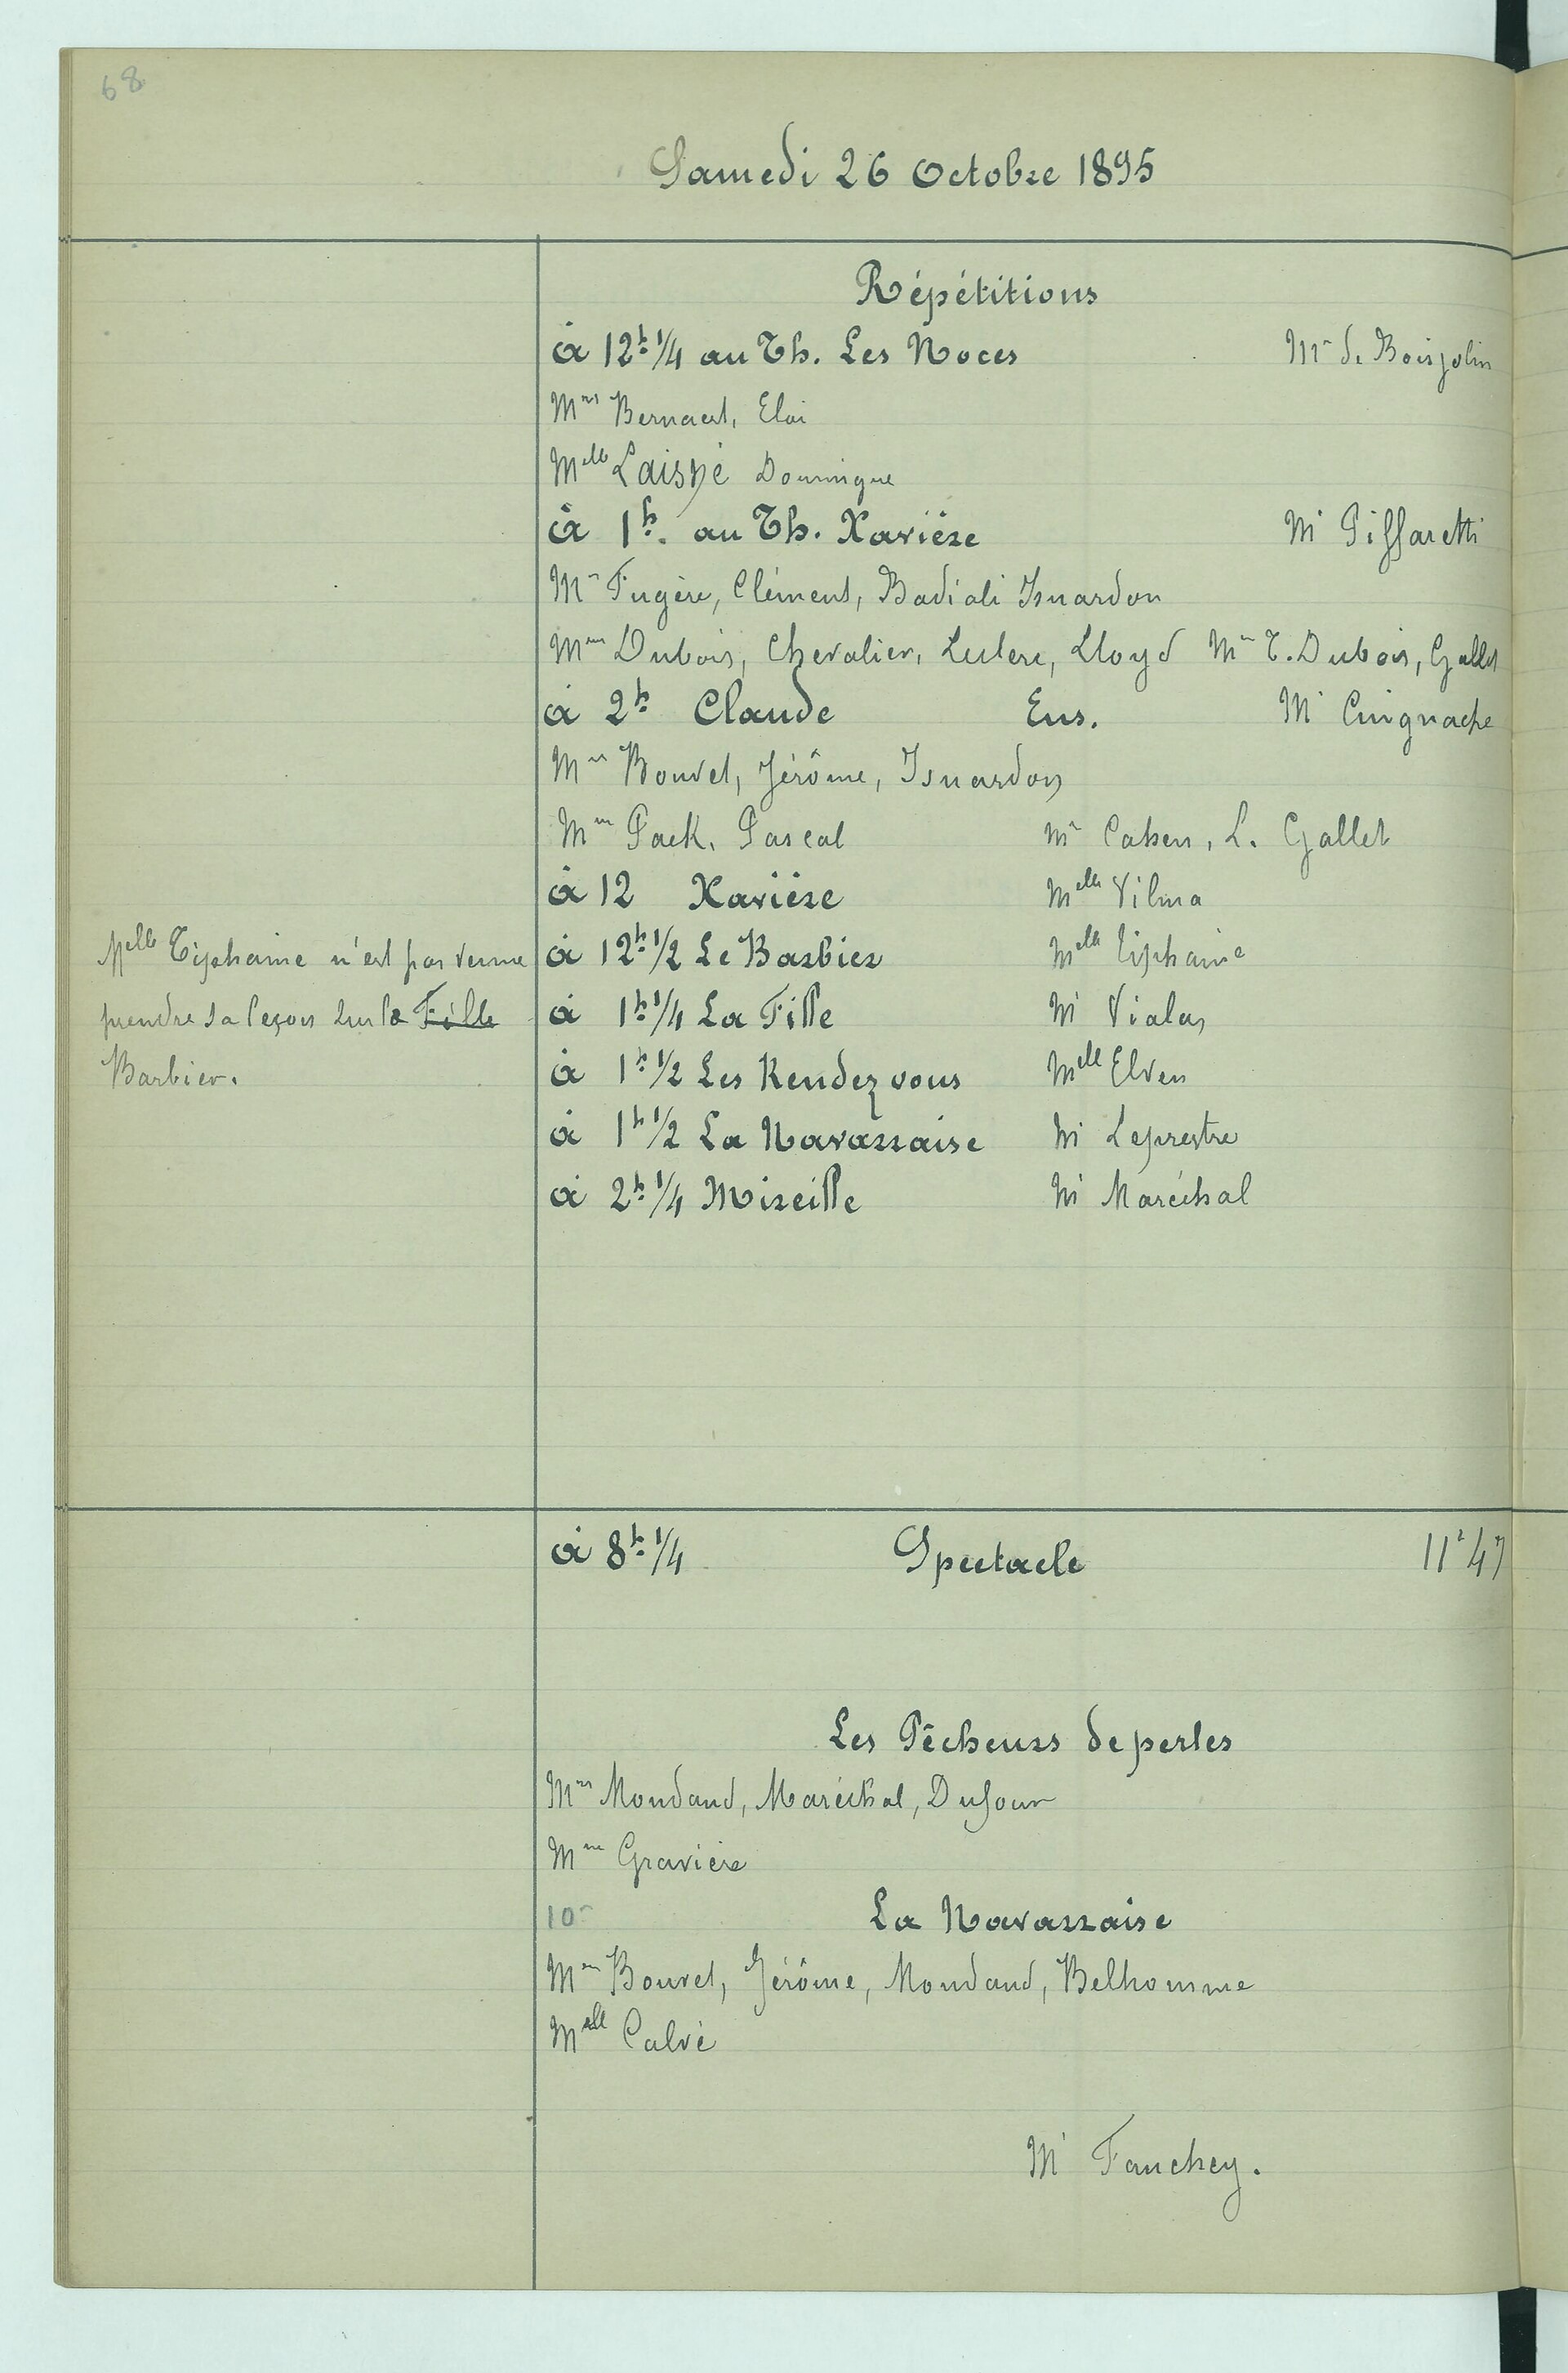 68
Samedi 26 Octobre 1895
Répétitions
à 12h 1/4 au Th. Les Noces Mr de Boisjolin
Mrs Bernaert, Eloi
Melle Laisné Domingue
à 1h. au Th. Xavière Mr Piffaretti
Mrs Fugère, Clément, Badiali Isnardon
Mmes Dubois, Chevalier, Leclerc, Lloyd Mrs T. Dubois, Gallet
à 2h Claude Ens. Mr Cuignache
Mrs Bouvet, Jérôme, Isnardon
Mmes Pack, Pascal Mrs Cahen, L. Gallet
à 12 Xavière Melle Vilma
Melle Tiphaine n'est pas venue
prendre sa leçon sur le Fille
Barbier.
à 12h 1/2 Le Barbier Melle Tiphaine
à 1h 1/4 La Fille Mr Vialas
à 1h 1/2 Les Rendez vous Melle Elven
à 1h 1/2 La Navarraise Mr Leprestre
à 2h 1/4 Mireille Mr Maréchal
à 8h 1/4 Spectacle 11h47
Les Pêcheurs de perles
Mrs Mondaud, Maréchal, Dufour
Mme Gravière
10h La Navarraise
Mrs Bouvet, Jérôme, Mondaud, Belhomme
Melle Calvé
Mr Fauchey.